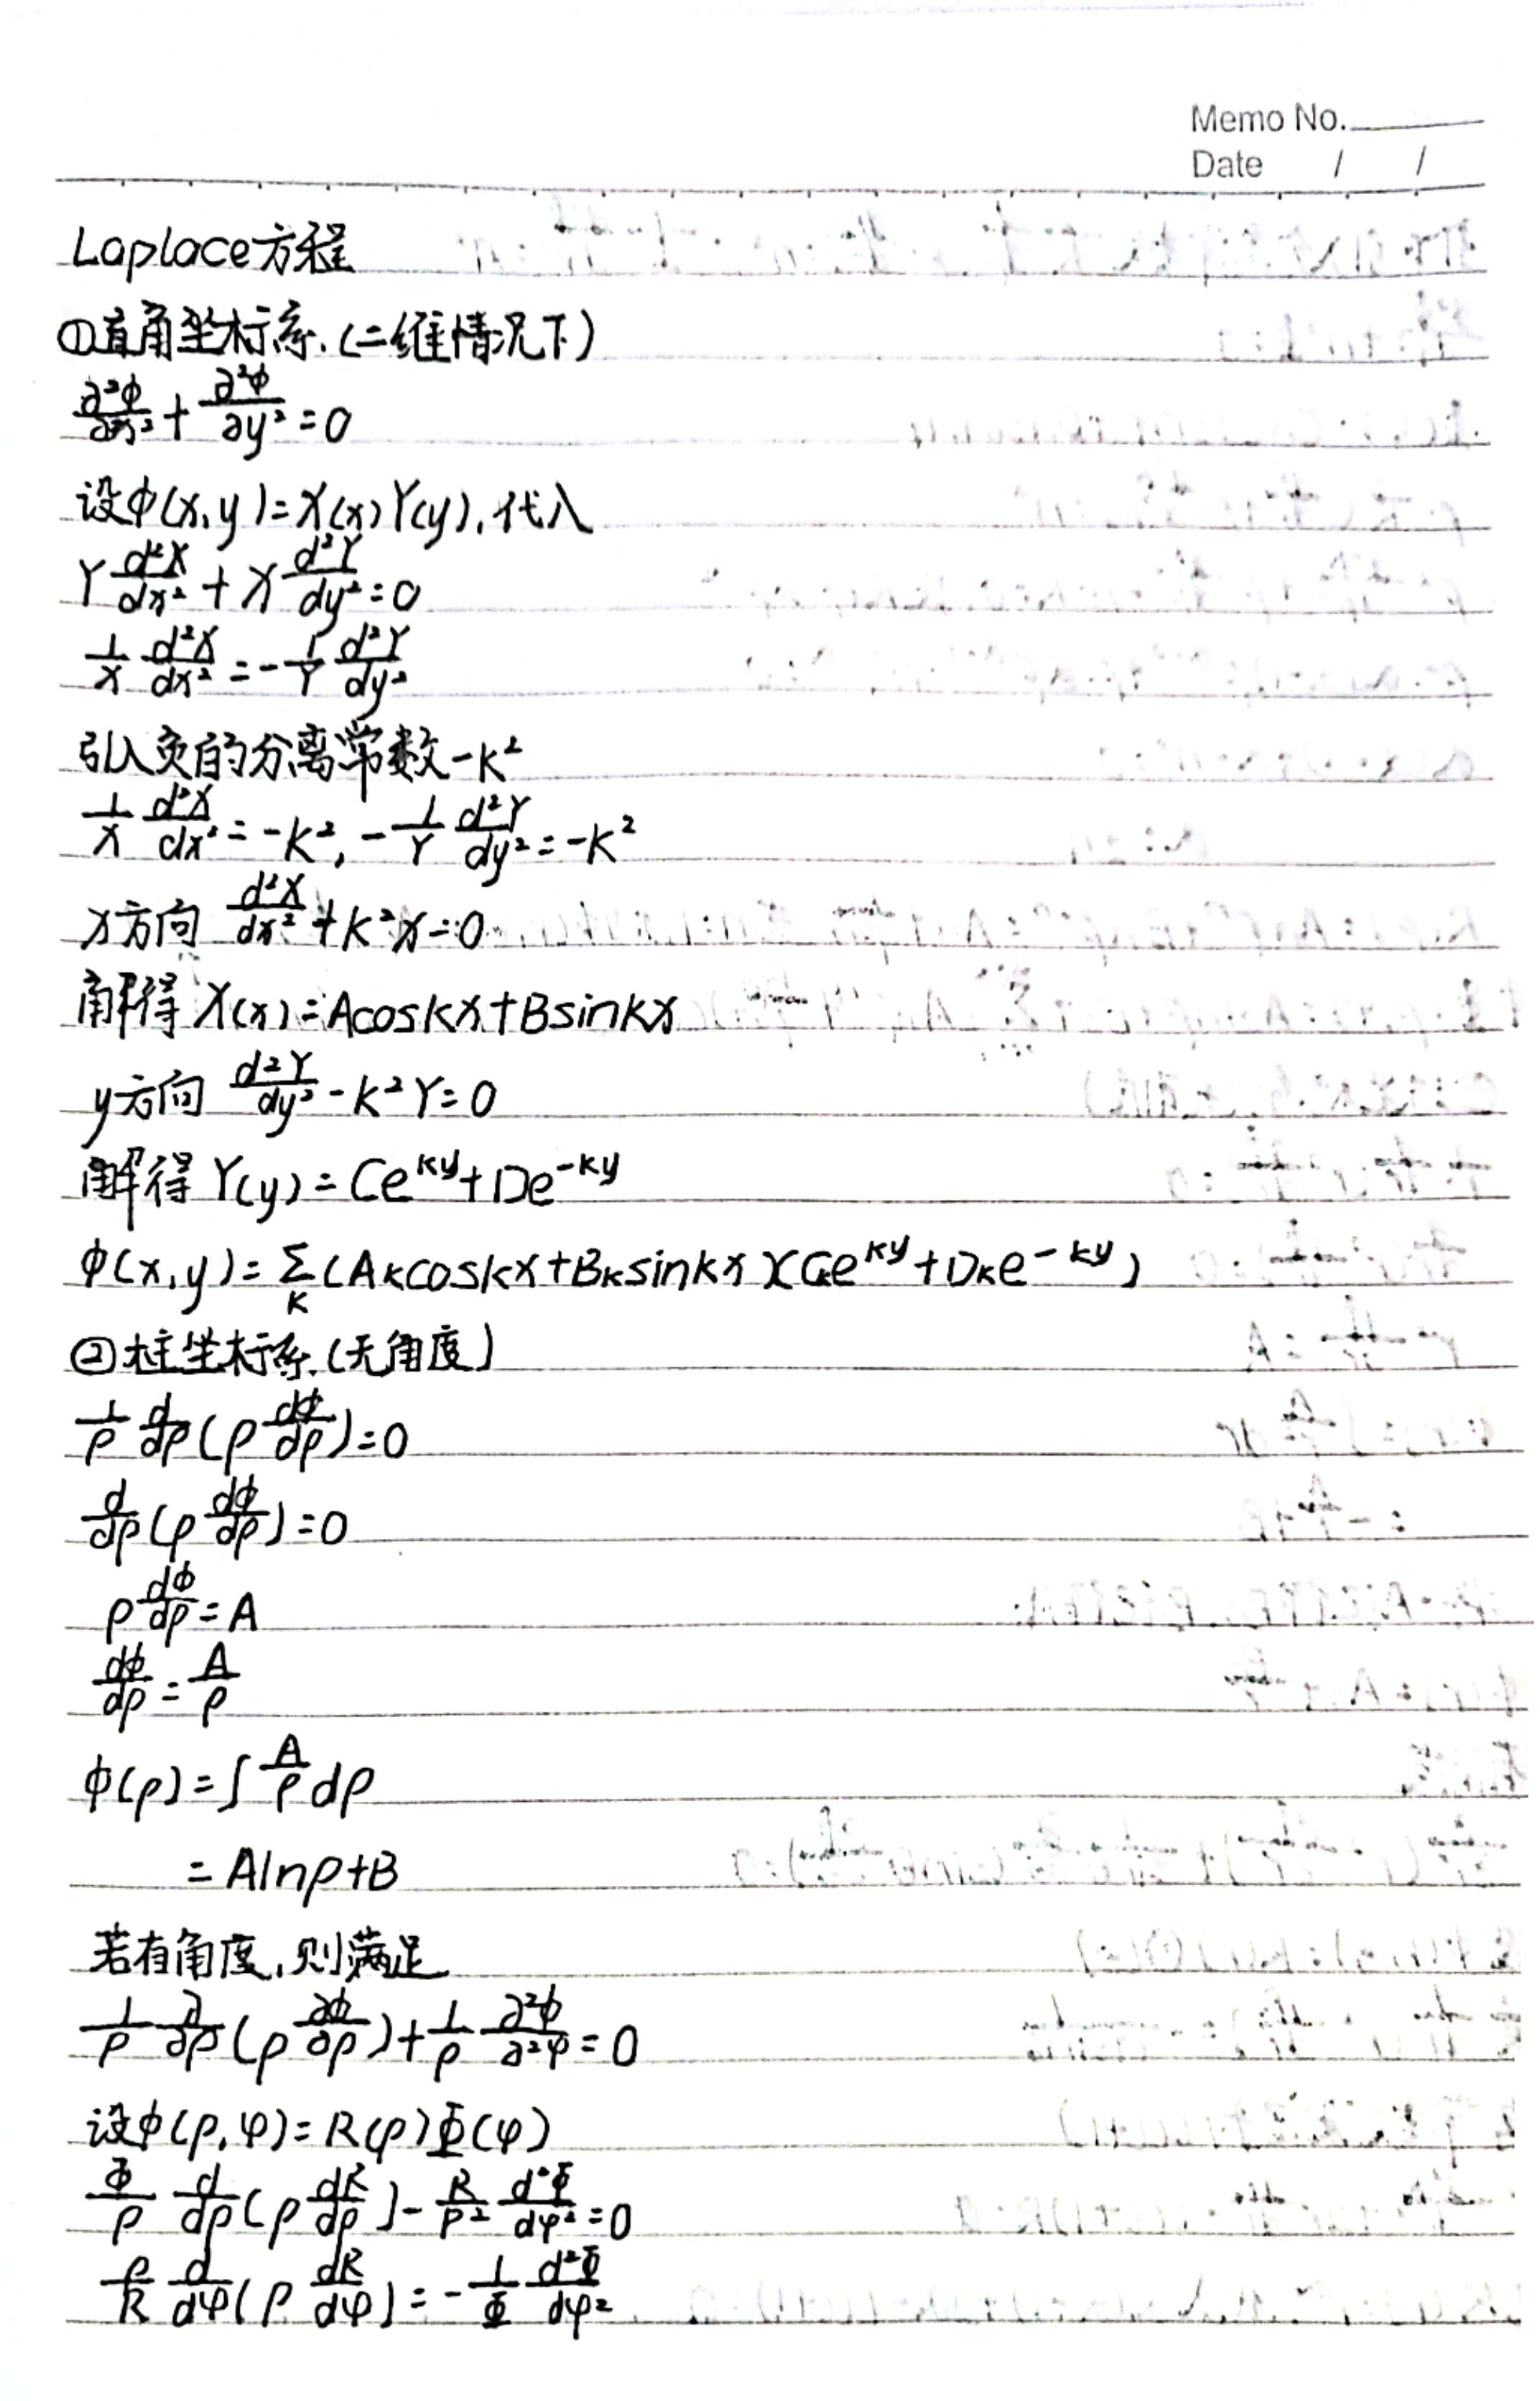 Memo No.
Date / /
Laplace方程
①直角坐标系.(二维情况下)
∂²φ/∂x² + ∂²φ/∂y² = 0
设φ(x,y)=X(x)Y(y),代入
Y d²X/dx² + X d²Y/dy² = 0
1/X d²X/dx² = -1/Y d²Y/dy²
引入负的分离常数-K²
1/X d²X/dx² = -K², -1/Y d²Y/dy² = -K²
X方向 d²X/dx² + K²X = 0
解得 X(x)=AcosKx+BsinKx
y方向 d²Y/dy² - K²Y = 0
解得 Y(y)=Ce^{Ky}+De^{-Ky}
φ(x,y)=Σ_K(A_K coskx+B_K sinkx)(C_K e^{Ky}+D_K e^{-Ky})
②柱坐标系.(无角度)
1/ρ d/dρ(ρ dφ/dρ)=0
d/dρ(ρ dφ/dρ)=0
ρ dφ/dρ = A
dφ/dρ = A/ρ
φ(ρ)=∫ A/ρ dρ
=Alnρ+B
若有角度,则满足
1/ρ ∂/∂ρ(ρ ∂φ/∂ρ)+1/ρ ∂²φ/∂²φ=0
设φ(ρ,φ)=R(ρ)Φ(φ)
Φ/ρ d/dρ(ρ dR/dρ)-R/ρ² d²Φ/dφ²=0
ρ/R d/dφ(ρ dR/dφ)=-1/Φ d²Φ/dφ²